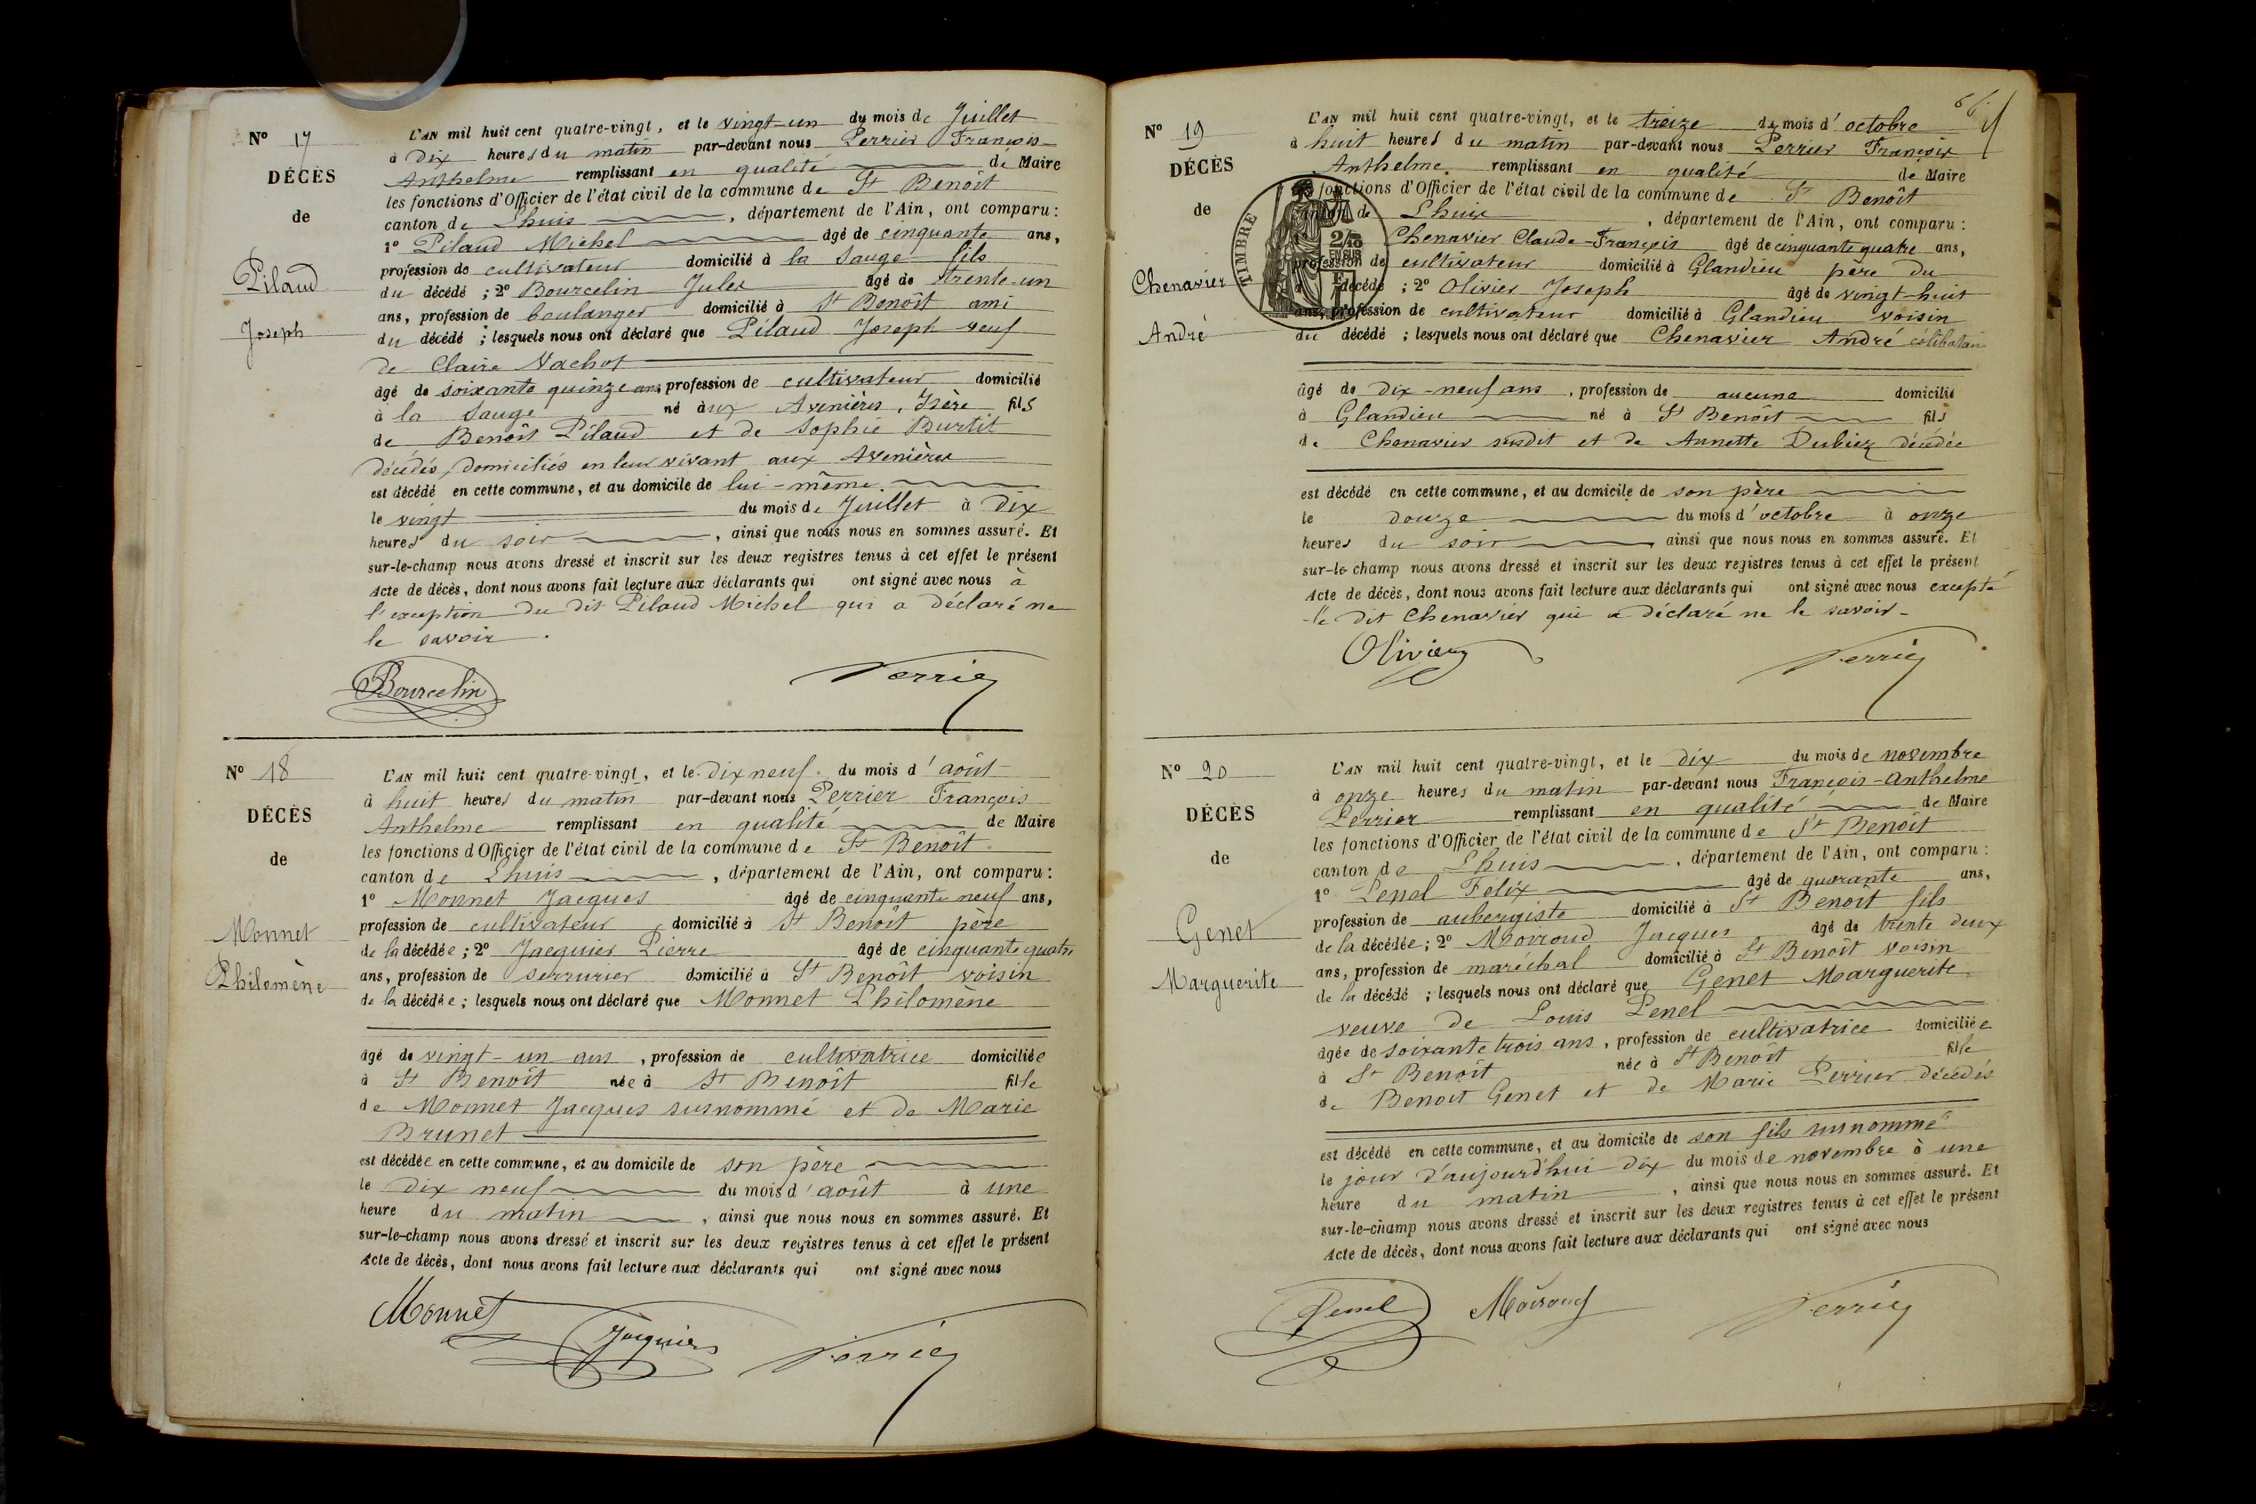 N° 17
DÉCÈS
de
Pilaud
Joseph
L'AN mil huit cent quatre-vingt, et le vingt-un du mois de Juillet
à dix heures du matin par-devant nous Perrier François
Anthelme remplissant en qualité de Maire
les fonctions d'Officier de l'état civil de la commune de St Benoît
canton de Lhuis, département de l'Ain, ont comparu :
1° Pilaud Michel âgé de cinquante ans,
profession de cultivateur domicilié à la Sauge fils
du décédé ; 2° Bourcelin Jules âgé de trente-un
ans, profession de boulanger domicilié à St Benoît ami
du décédé ; lesquels nous ont déclaré que Pilaud Joseph veuf
de Claire Vachot
âgé de soixante quinze ans, profession de cultivateur domicilié
à la Sauge né aux Avenières, Isère fils
de Benoît Pilaud et de Sophie Burtit
décédés, domiciliés en leur vivant aux Avenières
est décédé en cette commune, et au domicile de lui-même
le vingt du mois de Juillet à dix
heures du soir, ainsi que nous nous en sommes assuré. Et
sur-le-champ nous avons dressé et inscrit sur les deux registres tenus à cet effet le présent
Acte de décès, dont nous avons fait lecture aux déclarants qui ont signé avec nous à
l'exception du dit Pilaud Michel qui a déclaré ne
le savoir.
Bourcelin Perrier
N° 18
DÉCÈS
de
Monnet
Philomène
L'AN mil huit cent quatre-vingt, et le dix neuf du mois d'août
à huit heures du matin par-devant nous Perrier François
Anthelme remplissant en qualité de Maire
les fonctions d'Officier de l'état civil de la commune de St Benoît
canton de Lhuis, département de l'Ain, ont comparu :
1° Monnet Jacques âgé de cinquante neuf ans,
profession de cultivateur domicilié à St Benoît père
de la décédée ; 2° Jacquier Pierre âgé de cinquante quatre
ans, profession de serrurier domicilié à St Benoît voisin
de la décédée ; lesquels nous ont déclaré que Monnet Philomène
âgé de vingt-un ans, profession de cultivatrice domiciliée
à St Benoît née à St Benoît fille
de Monnet Jacques susnommé et de Marie
Brunet
est décédée en cette commune, et au domicile de son père
le dix neuf du mois d'août à une
heure du matin, ainsi que nous nous en sommes assuré. Et
sur-le-champ nous avons dressé et inscrit sur les deux registres tenus à cet effet le présent
Acte de décès, dont nous avons fait lecture aux déclarants qui ont signé avec nous
Monnet Jacquier Perrier
N° 19
DÉCÈS
de
Chenavier
André
TIMBRE
L'AN mil huit cent quatre-vingt, et le treize du mois d'octobre
à huit heures du matin par-devant nous Perrier François
Anthelme remplissant en qualité de Maire
fonctions d'Officier de l'état civil de la commune de St Benoît
canton de Lhuis, département de l'Ain, ont comparu :
Chenavier Claude-François âgé de cinquante quatre ans,
profession de cultivateur domicilié à Glandieu père du
décédé ; 2° Olivier Joseph âgé de vingt-huit
ans, profession de cultivateur domicilié à Glandieu voisin
du décédé ; lesquels nous ont déclaré que Chenavier André célibataire
âgé de dix-neuf ans, profession de aucune domicilié
à Glandieu né à St Benoît fils
de Chenavier susdit et de Annette Dubiez décédée
est décédé en cette commune, et au domicile de son père
le douze du mois d'octobre à onze
heures du soir ainsi que nous nous en sommes assuré. Et
sur-le champ nous avons dressé et inscrit sur les deux registres tenus à cet effet le présent
Acte de décès, dont nous avons fait lecture aux déclarants qui ont signé avec nous excepté
le dit Chenavier qui a déclaré ne le savoir
Olivier Perrier
N° 20
DÉCÈS
de
Genet
Marguerite
L'AN mil huit cent quatre-vingt, et le dix du mois de novembre
à onze heures du matin par-devant nous François-Anthelme
Perrier remplissant en qualité de Maire
les fonctions d'Officier de l'état civil de la commune de St Benoît
canton de Lhuis, département de l'Ain, ont comparu :
1° Penel Felix âgé de quarante ans,
profession de aubergiste domicilié à St Benoît fils
de la décédée ; 2° Moiroud Jacques âgé de trente deux
ans, profession de maréchal domicilié à St Benoît voisin
de la décédé ; lesquels nous ont déclaré que Genet Marguerite
veuve de Louis Penel
âgée de soixante trois ans, profession de cultivatrice domiciliée
à St Benoît née à St Benoît fille
de Benoit Genet et de Marie Perrier décédés
est décédé en cette commune, et au domicile de son fils susnommé
le jour d'aujourd'hui dix du mois de novembre à une
heure du matin, ainsi que nous nous en sommes assuré. Et
sur-le-champ nous avons dressé et inscrit sur les deux registres tenus à cet effet le présent
Acte de décès, dont nous avons fait lecture aux déclarants qui ont signé avec nous
Penel Moiroud Perrier